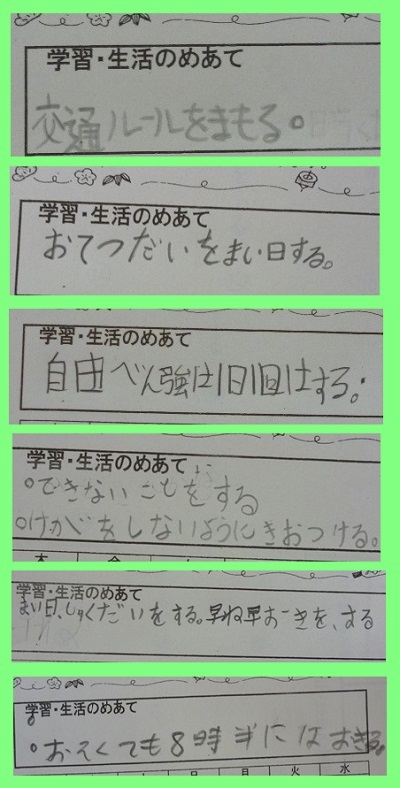 学習・生活のめあて
交通ルールをまもる。
学習・生活のめあて
おてつだいをまい日する。
学習・生活のめあて
自由べん強は1日1回はする。
学習・生活のめあて
○できないことをする
○けがをしないようにきおつける。
学習・生活のめあて
まい日、しゅくだいをする。早ね早おーきを、する
学習・生活のめあて
○おそくても8時半にはおきる。
日 月 火 水